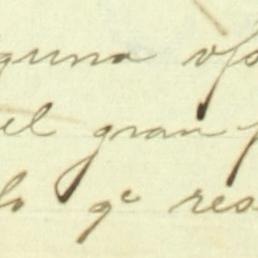 guna
el gran
lo qe res